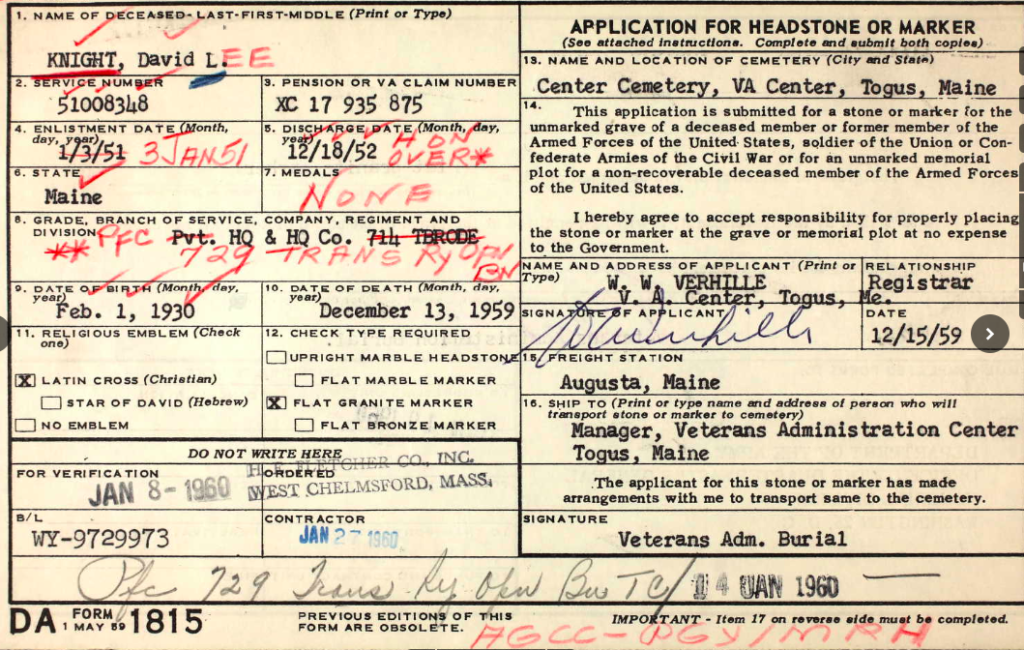 1. NAME OF DECEASED-LAST-FIRST-MIDDLE (Print or Type)
KNIGHT, David L.EE
2. SERVICE NUMBER
51008348
3. PENSION OR VA CLAIM NUMBER
XC 17 935 875
4. ENLISTMENT DATE (Month, day, year)
1/3/51 3 JAN 51
5. DISCHARGE DATE (Month, day, year)
12/18/52 HON
OVER*
6. STATE
Maine
7. MEDALS
NONE
8. GRADE, BRANCH OF SERVICE, COMPANY, REGIMENT AND
DIVISION
** PFC Pvt. HQ & HQ Co. 714 TBRODE
729 TRANS Ry Opn
BN
9. DATE OF BIRTH (Month, day, year)
Feb. 1, 1930
10. DATE OF DEATH (Month, day, year)
December 13, 1959
11. RELIGIOUS EMBLEM (Check one)
X LATIN CROSS (Christian)
STAR OF DAVID (Hebrew)
NO EMBLEM
12. CHECK TYPE REQUIRED
UPRIGHT MARBLE HEADSTONE
FLAT MARBLE MARKER
X FLAT GRANITE MARKER
FLAT BRONZE MARKER
DO NOT WRITE HERE
FOR VERIFICATION
JAN 8-1960
ORDERED
H. E. FLETCHER CO., INC.
WEST CHELMSFORD, MASS.
B/L
WY-9729973
CONTRACTOR
JAN 27 1960
APPLICATION FOR HEADSTONE OR MARKER
(See attached instructions. Complete and submit both copies)
13. NAME AND LOCATION OF CEMETERY (City and State)
Center Cemetery, VA Center, Togus, Maine
14.
This application is submitted for a stone or marker for the
unmarked grave of a deceased member or former member of the
Armed Forces of the United States, soldier of the Union or Con-
federate Armies of the Civil War or for an unmarked memorial
plot for a non-recoverable deceased member of the Armed Forces
of the United States.
I hereby agree to accept responsibility for properly placing
the stone or marker at the grave or memorial plot at no expense
to the Government.
NAME AND ADDRESS OF APPLICANT (Print or Type)
W. W. VERHILLE
V. A. Center, Togus, Me.
RELATIONSHIP
Registrar
SIGNATURE OF APPLICANT
DATE
12/15/59
15. FREIGHT STATION
Augusta, Maine
16. SHIP TO (Print or type name and address of person who will
transport stone or marker to cemetery)
Manager, Veterans Administration Center
Togus, Maine
The applicant for this stone or marker has made
arrangements with me to transport same to the cemetery.
SIGNATURE
Veterans Adm. Burial
Pfc 729 Trans Ry Opn Bn TC/ 14 JAN 1960
DA FORM 1 MAY 59 1815
PREVIOUS EDITIONS OF THIS
FORM ARE OBSOLETE.
IMPORTANT - Item 17 on reverse side must be completed.
AGCC-PGY/MRH